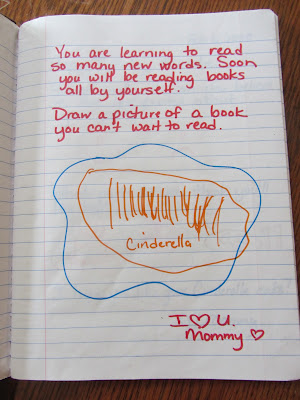 You are learning to read
so many new words. Soon
you will be reading books
all by yourself.
Draw a picture of a book
you can't wait to read.
Cinderella
I ♡ U.
Mommy ♡